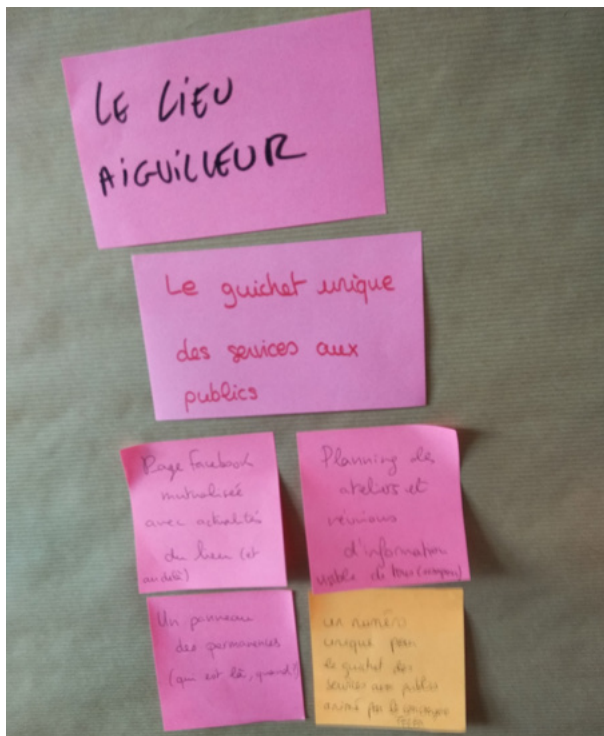 LE LIEU
AIGUILLEUR
Le guichet unique
des services aux
publics
Page Facebook
mutualisée
avec actualités
du lieu (et
au delà)
Planning des
ateliers et
réunions
d'information
visible de tous
Un panneau
des permanences
(qui est là, quand?)
un numéro
unique pour
le guichet des
services aux publics
animé par